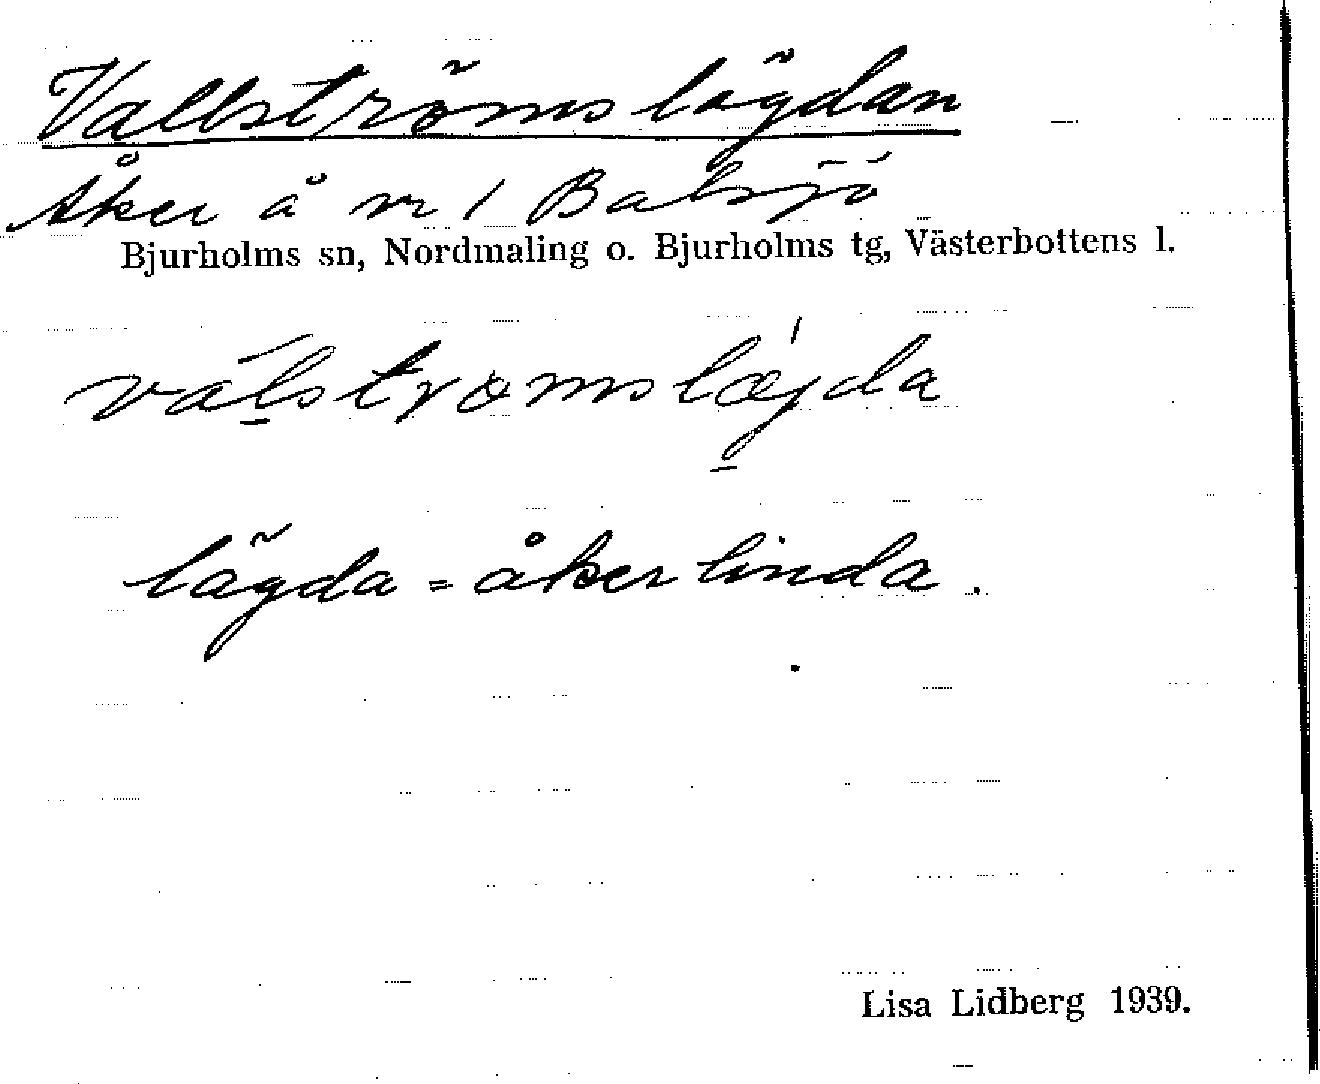 Vallströmslägdan
Åker å nr 1 Balsjö
Bjurholms sn, Nordmaling o. Bjurholms tg, Västerbottens l.
válstromslæ̀jda
lägda = åkerlinda.
Lisa Lidberg 1939.